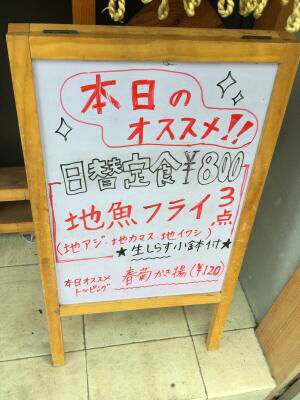 本日の
オススメ!!
日替定食¥800
地魚フライ3点
(地アジ・地カマス・地イワシ)
★生しらす小鉢付★
本日オススメ
トッピング
春菊かき揚(¥120)